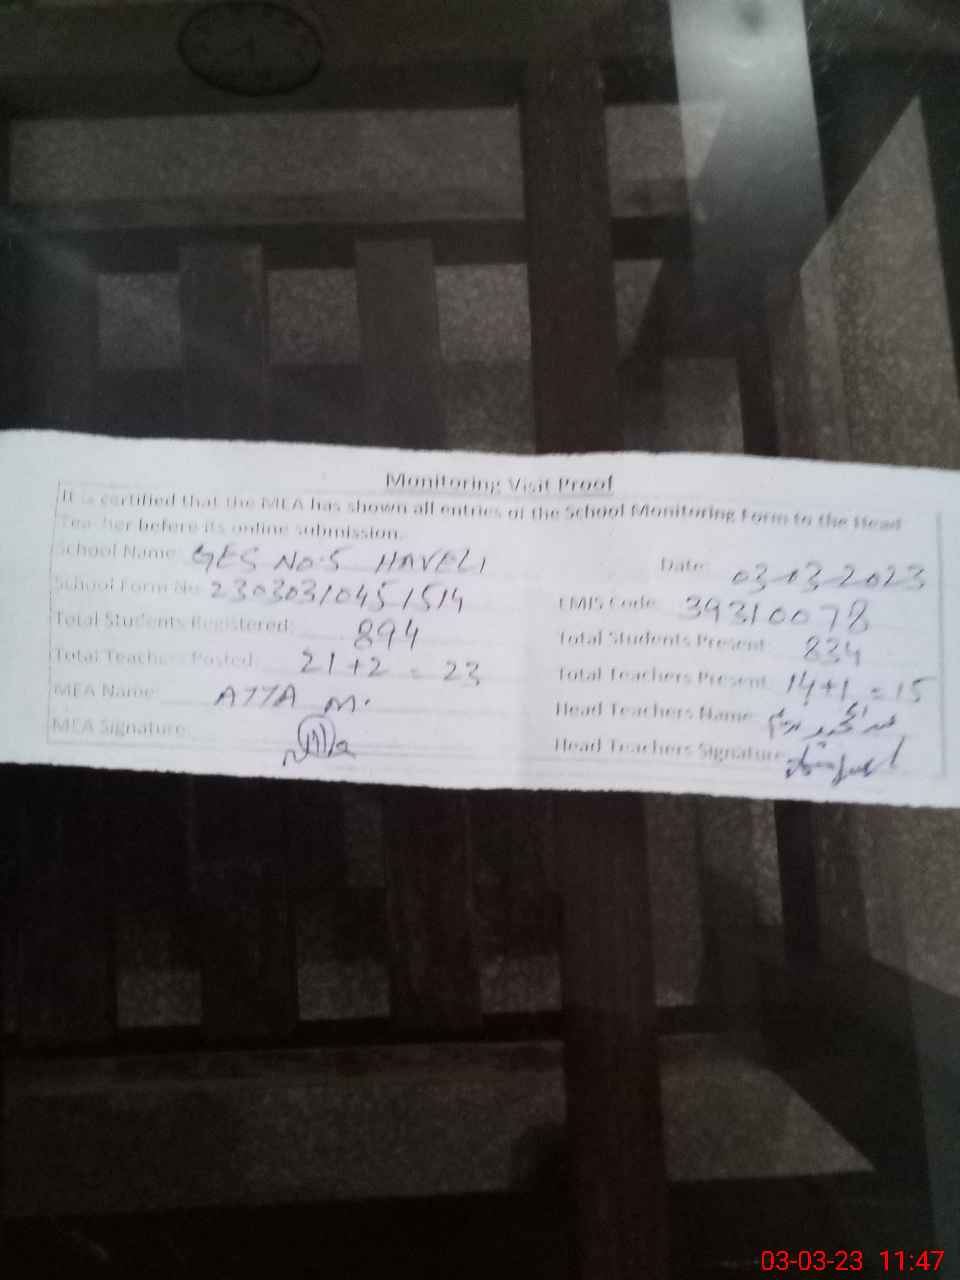 Monitoring Visit Proof
It is certified that the MEA has shown all entries of the School Monitoring Form to the Head
Teacher before its online submission.
School Name: GES No.5 HAVELI Date: 03-03-2023
School Form No: 2303031045 1514 EMIS Code: 39310078
Total Students Registered: 894 Total Students Present: 834
Total Teachers Posted: 21+2 = 23 Total Teachers Present: 14+1 = 15
MEA Name: ATTA M. Head Teachers Name:
MEA Signature: Head Teachers Signature:
03-03-23 11:47